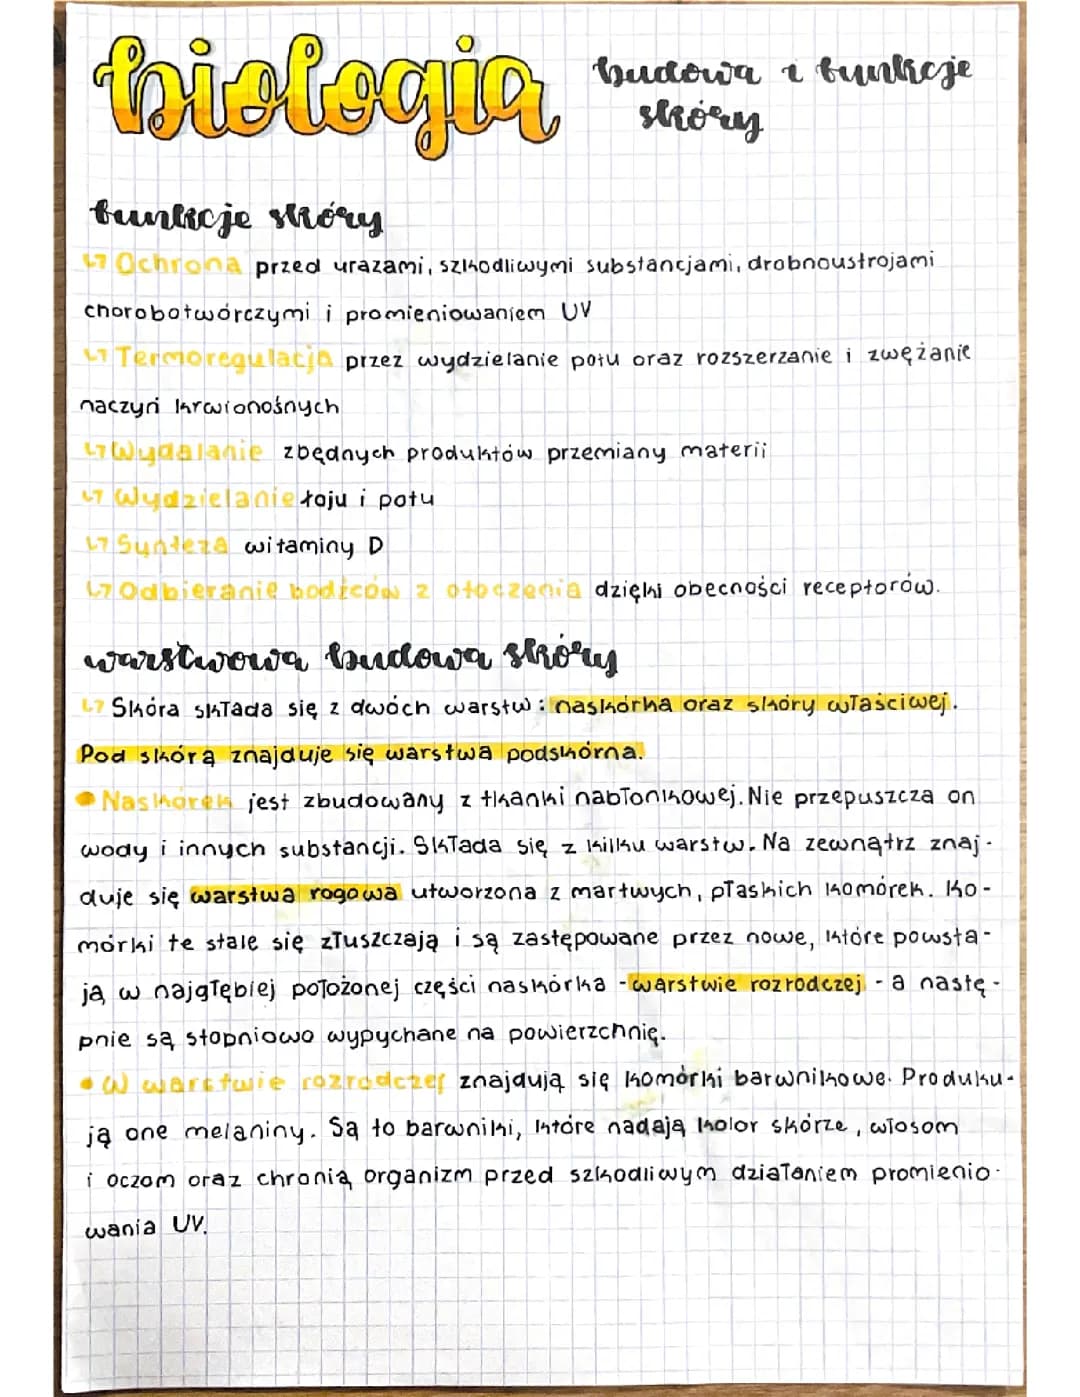 biologia
budowa i funkcje
skóry
funkcje skóry
↳ Ochrona przed urazami, szkodliwymi substancjami, drobnoustrojami
chorobotwórczymi i promieniowaniem UV
↳ Termoregulacja przez wydzielanie potu oraz rozszerzanie i zwężanie
naczyń krwionośnych
↳ Wydalanie zbędnych produktów przemiany materii
↳ Wydzielanie łoju i potu
↳ Synteza witaminy D
↳ Odbieranie bodźców z otoczenia dzięki obecności receptorów.
warstwowa budowa skóry
↳ Skóra składa się z dwóch warstw: naskórka oraz skóry właściwej.
Pod skórą znajduje się warstwa podskórna.
• Naskórek jest zbudowany z tkanki nabłonkowej. Nie przepuszcza on
wody i innych substancji. Składa się z kilku warstw. Na zewnątrz znaj-
duje się warstwa rogowa utworzona z martwych, płaskich komórek. Ko-
mórki te stale się złuszczają i są zastępowane przez nowe, które powsta-
ją w najgłębiej położonej części naskórka - warstwie rozrodczej - a nastę-
pnie są stopniowo wypychane na powierzchnię.
• W warstwie rozrodczej znajdują się komórki barwnikowe. Produku-
ją one melaniny. Są to barwniki, które nadają kolor skórze, włosom
i oczom oraz chronią organizm przed szkodliwym działaniem promienio-
wania UV.